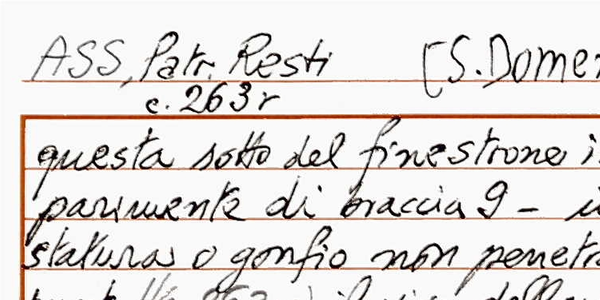 ASS, Patr. Resti [S. Domen
c. 263r
questa sotto del finestrone i
parimente di braccia 9 -
statura o gonfio non penetra